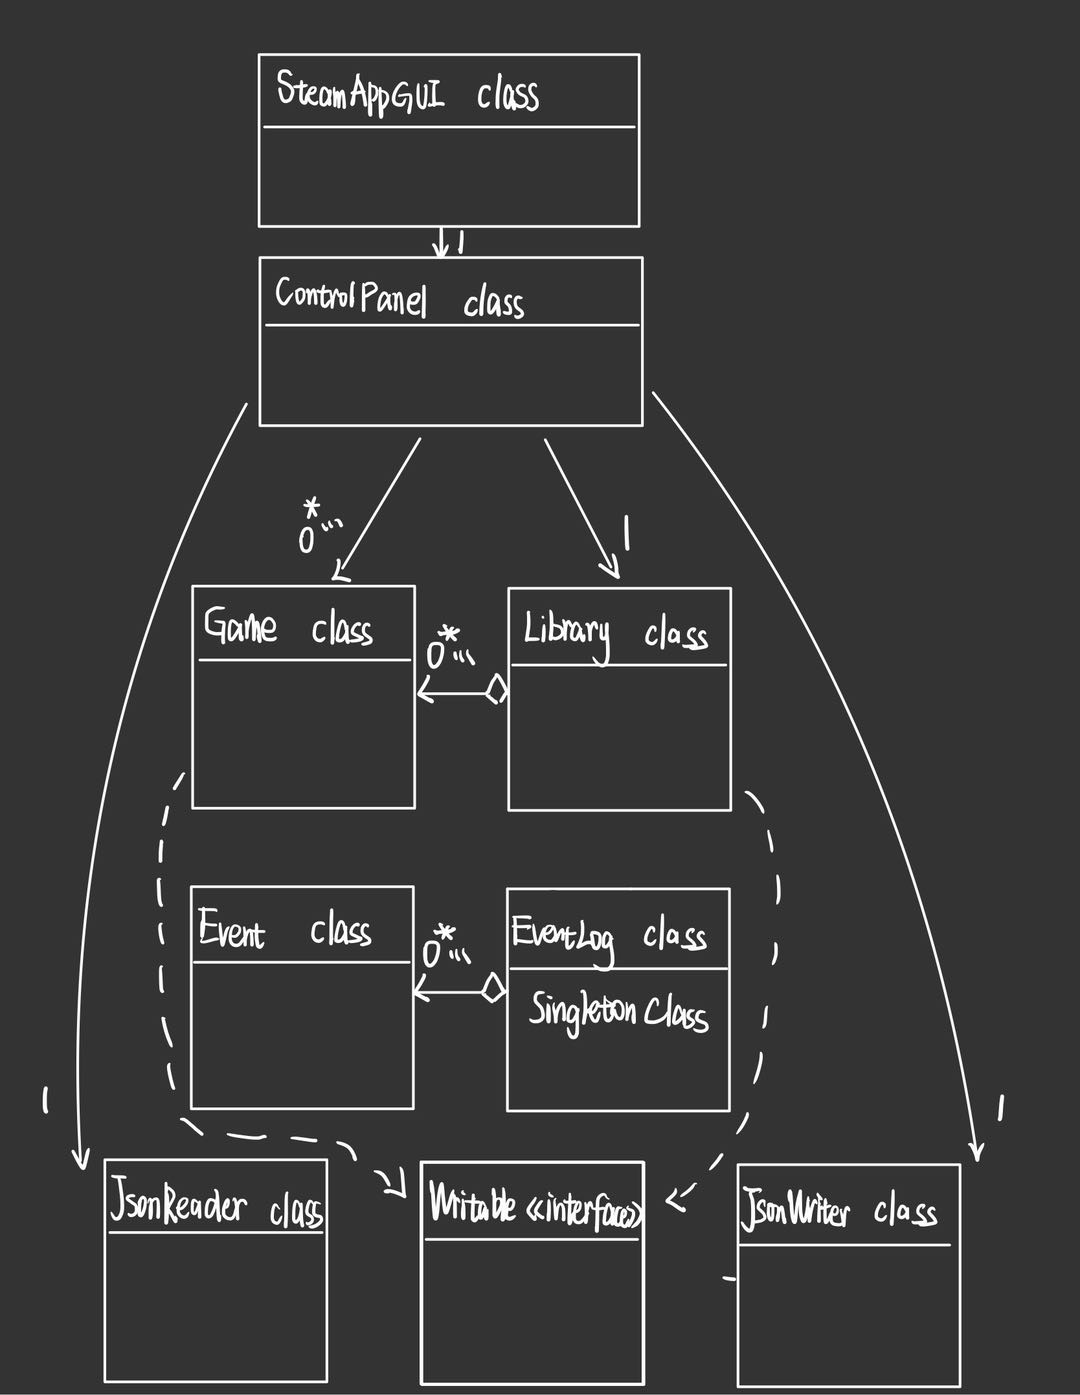 SteamAppGUI class
1
ControlPanel class
*
0...
1
Game class
*
0...
Library class
Event class
*
0...
EventLog class
Singleton Class
1
1
JsonReader class
Writable <<interface>>
JsonWriter class